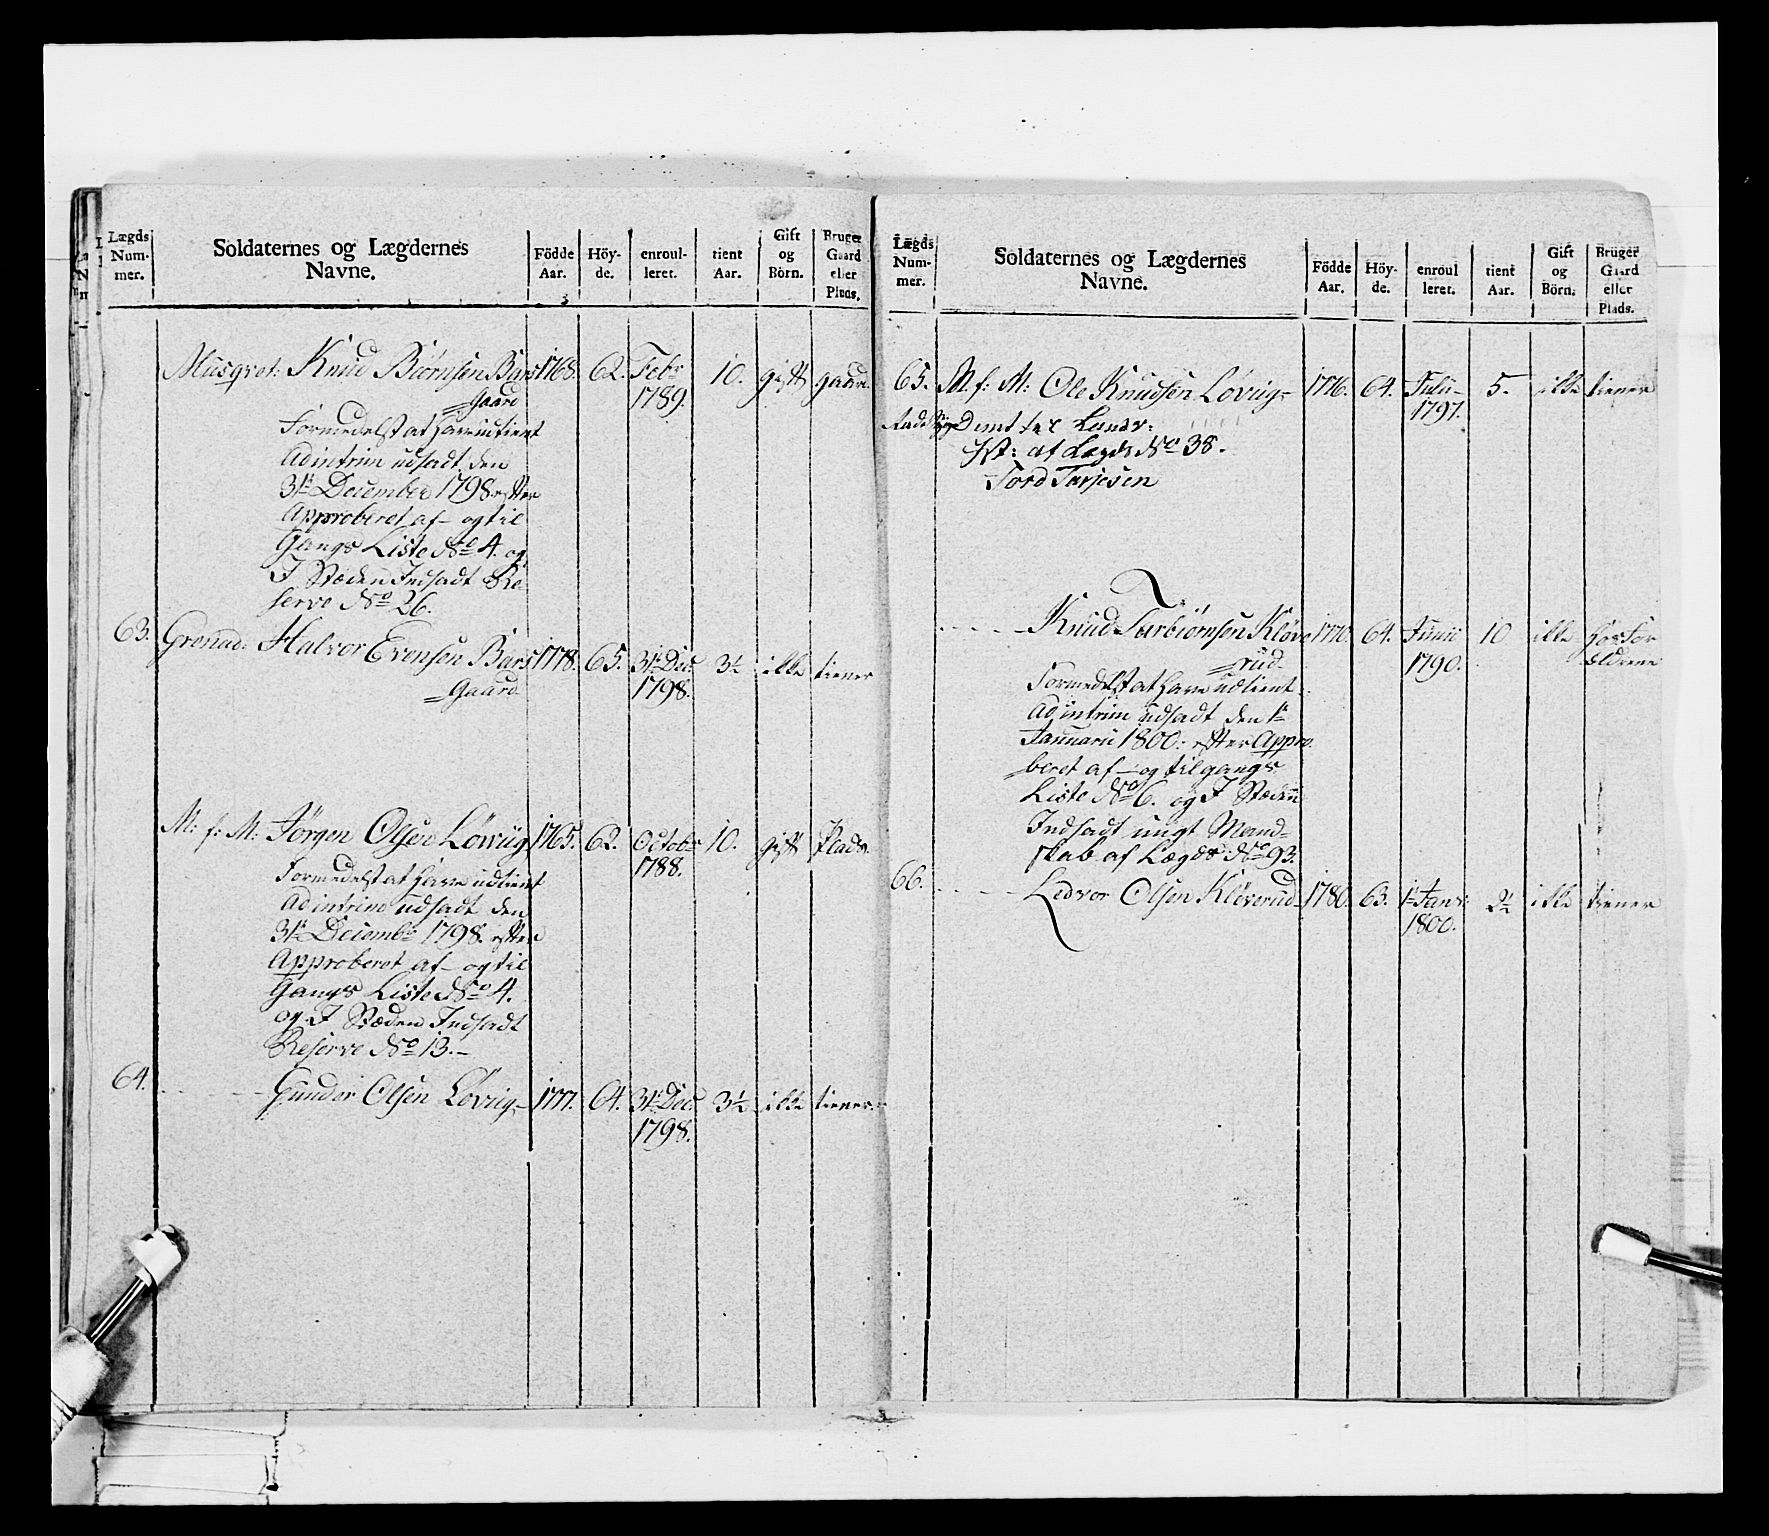 Lægds Num- mer.
Soldaternes og Lægdernes Navne.
Födde Aar.
Höy- de.
enroul- leret.
tient Aar.
Gift og Börn.
Bruger Gaard eller Plads.
Musqvet: Knud Biørnsen Bars 1768. 62. Febr gift gaard.
=Gaard 1789. 10.
Formedelst at have udtient
Ad intrim udsadt den
31te December 1798 efter
Approberet af- og til
Gangs Liste No 4. og
I Stæden Indsadt Re-
serve No 26.
63. Grenad: Halvor Evensen Bars 1778. 65. 31te Dec: 3½ ikke tiener
=Gaard 1798.
M: f: M: Jørgen Olsen Løvrig 1765. 62. Octobr 10. gift Plads.
1788.
Formedelst at have udtient
Ad intrim udsadt den
31te Decembr 1798. efter
Approberet af- og til
Gangs Liste No 4.
og I Stæden Indsadt
Reserve No 13.-
64. Gunder Olsen Løvrig- 1777. 64. 31te Dec: 3½ ikke tiener.
1798.
Lægds Num- mer.
Soldaternes og Lægdernes Navne.
Födde Aar.
Höy- de.
enroul leret.
tient Aar.
Gift og Börn.
Bruger Gaard eller Plads.
65. M: f: M: Ole Knudsen Løvrig- 1776. 64. Julii- 5. ikke tiener
1797.
dmt til Landv:
af Lægds No 38.
Tord Tarjesen
Knud Tarbiørnsen Kløve 1770. 64. Junii 10 ikke hos for
=rud 1790. ældrene
Formedelst at have udtient
Ad intrim udsadt den 1te
Januarii 1800: efter Appro
=beret af- og tilgangs
Liste No 6. og I Stæden
Indsadt ungt Mand=
skab af Lægds No 93.
66. Ledvor Olsen Kløverud 1780. 63. 1te Janr: 2½ ikke tiener
1800.